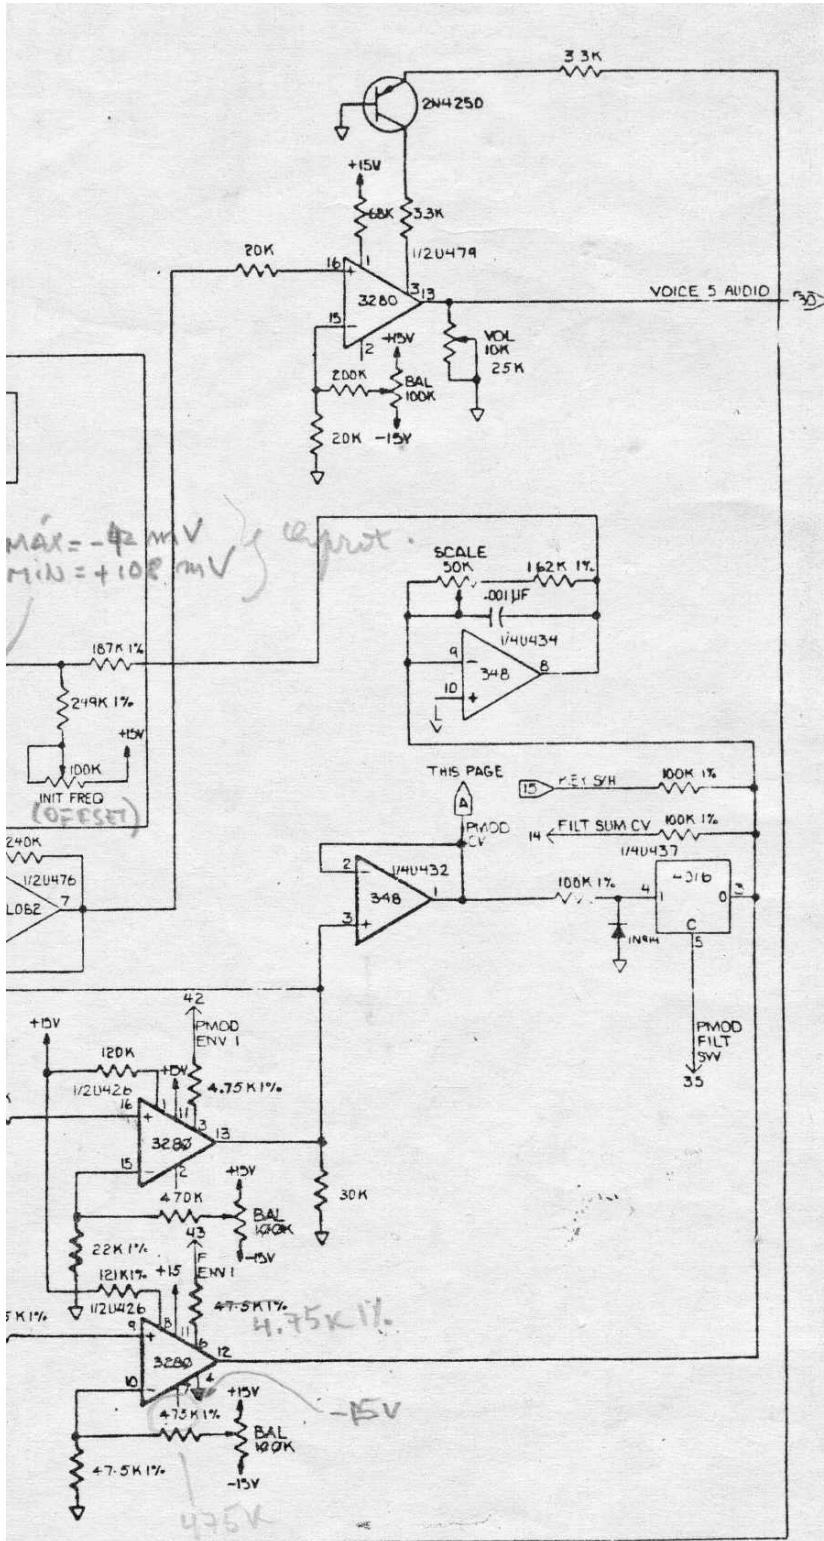 3.3K
2N4250
+15V
68K
3.3K
1/2U479
20K
16
+
1
3
13
3280
15
−
2
VOICE 5 AUDIO
30
VOL
10K
25K
+15V
200K
BAL
100K
−15V
20K
MÁX = -42 mV
MÍN = +108 mV
SCALE
50K
1.62K 1%
.001µF
1/4U434
9
−
348
8
10
+
187K 1%
249K 1%
+15V
100K
INIT FREQ
(OFFSET)
THIS PAGE
A
PMOD
CV
15
KEY S/H
100K 1%
14
FILT SUM CV
100K 1%
1/4U437
240K
1/2U476
7
2
−
1/4U432
348
1
3
+
100K 1%
4
I
O
3
C
5
1N914
PMOD
FILT
SW
35
42
PMOD
ENV 1
+15V
120K
+15V
4.75K 1%
1/2U426
16
+
1
11
3
13
3280
15
−
2
470K
+15V
BAL
100K
−15V
30K
22K 1%
43
F
ENV 1
121K 1%
+15
47.5K 1%
4.75K 1%
1/2U426
9
+
8
11
6
12
3280
4
10
−
7
-15V
473K 1%
+15V
BAL
100K
−15V
47.5K 1%
475K